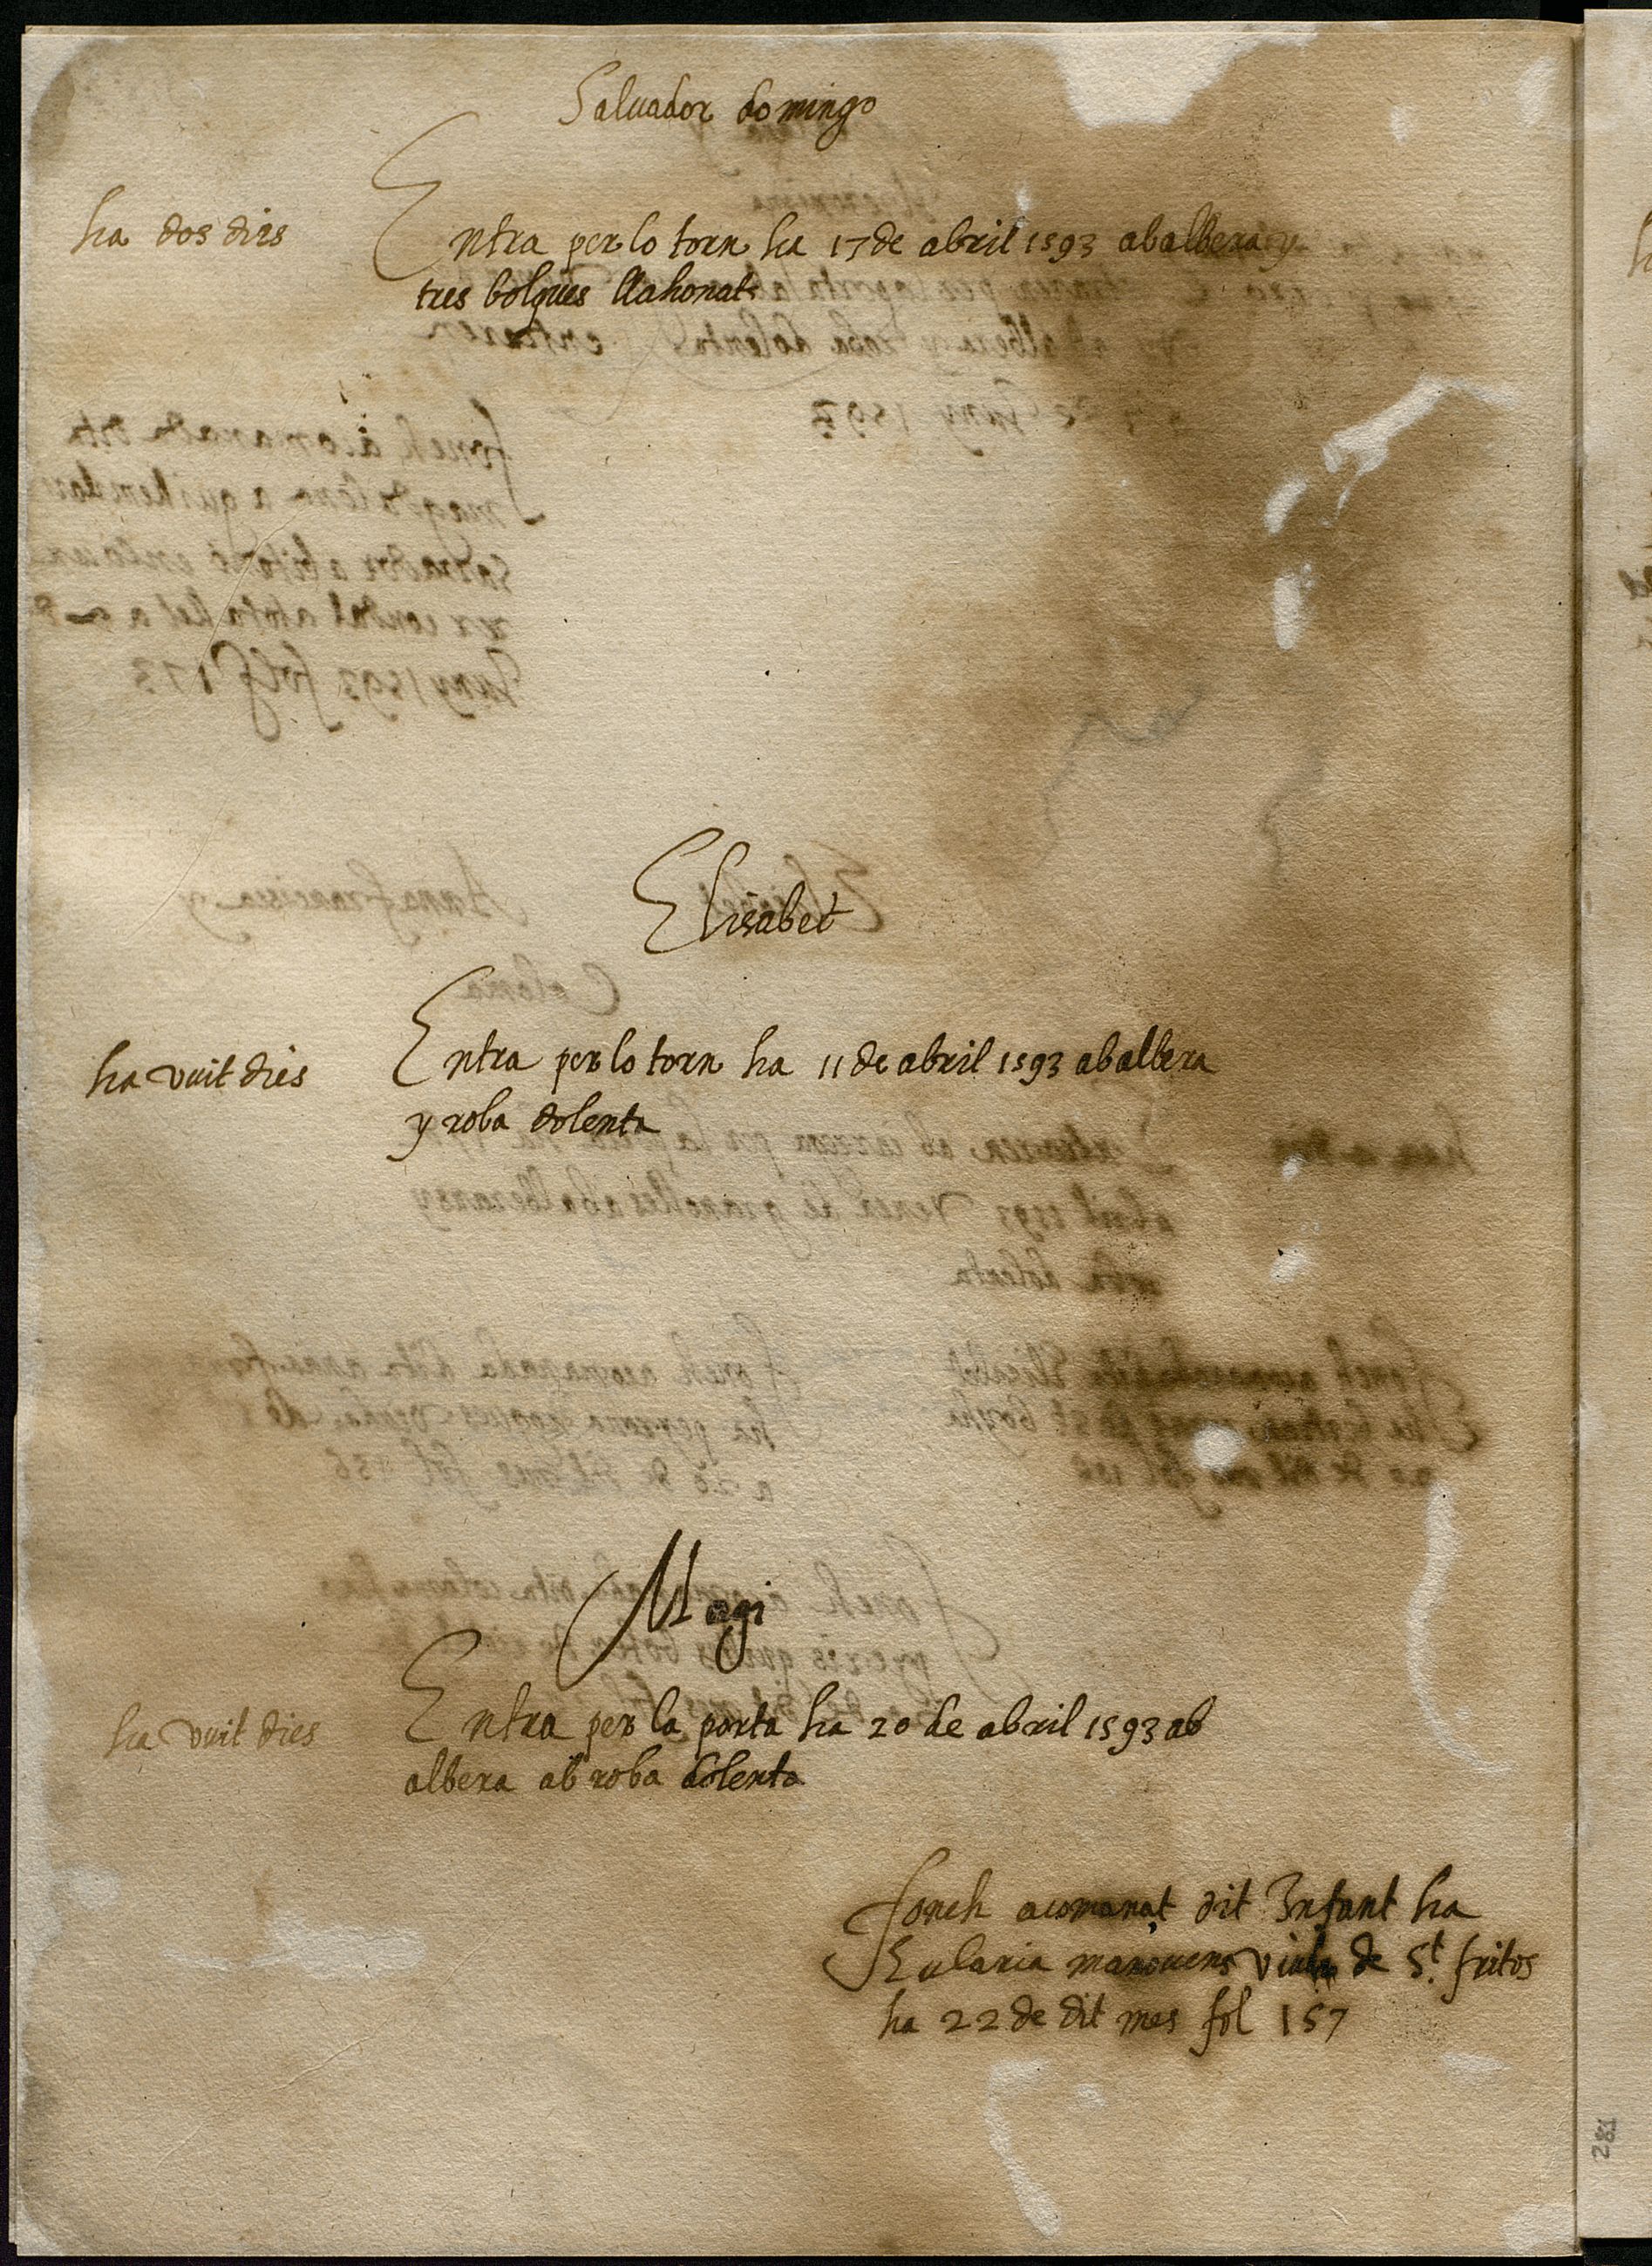 Salvador domingo
ha dos dies
Entra per lo torn ha 17 de abril 1593 ab albera y
tres bolques llahonat
Elisabet
ha vuit dies
Entra per lo torn ha 11 de abril 1593 ab albera
y roba dolenta
Magi
ha vuit dies
Entra per la porta ha 20 de abril 1593 ab
albera ab roba dolenta
fonch acomanat dit Infant ha
Eularia viuda de St. fritos
ha 22 de dit mes fol 157
281